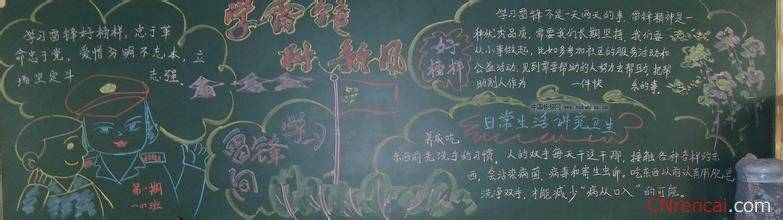 学雷锋
树新风
学习雷锋好榜样，忠于革
命忠于党，爱憎分明不忘本，立
场坚定斗 志强
向雷锋学习
第一期
好榜样
学习雷锋不是一天两天的事，雷锋精神是一
种优秀品质，需要我们长期坚持，我们要
从小事做起，比如多参加社区的服务活动和
公益活动，见到需要帮助的人努力去帮助，把帮
助别人作为 一件快 的事。
日常生活讲究卫生
养成吃
东西前先洗手的习惯，人的双手每天干这干那，接触各种各样的东
西，会沾染病菌、病毒和寄生虫卵，吃东西以前认真用肥皂
洗净双手，才能减少“病从口入”的可能。
CNrencai.com